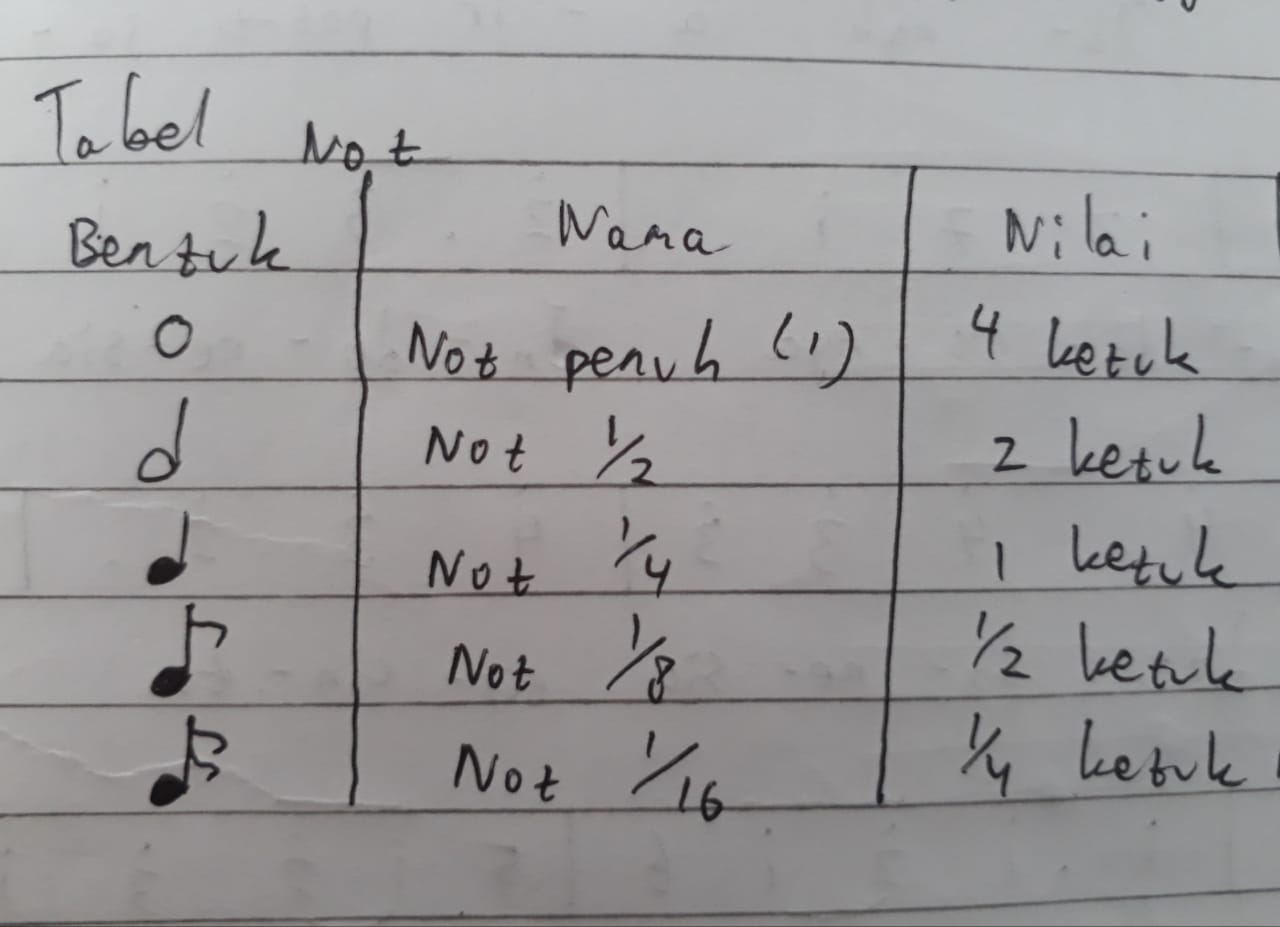 Tabel Not
Bentuk Nama Nilai
Not penuh (1) 4 ketuk
Not 1/2 2 ketuk
Not 1/4 1 ketuk
Not 1/8 1/2 ketuk
Not 1/16 1/4 ketuk